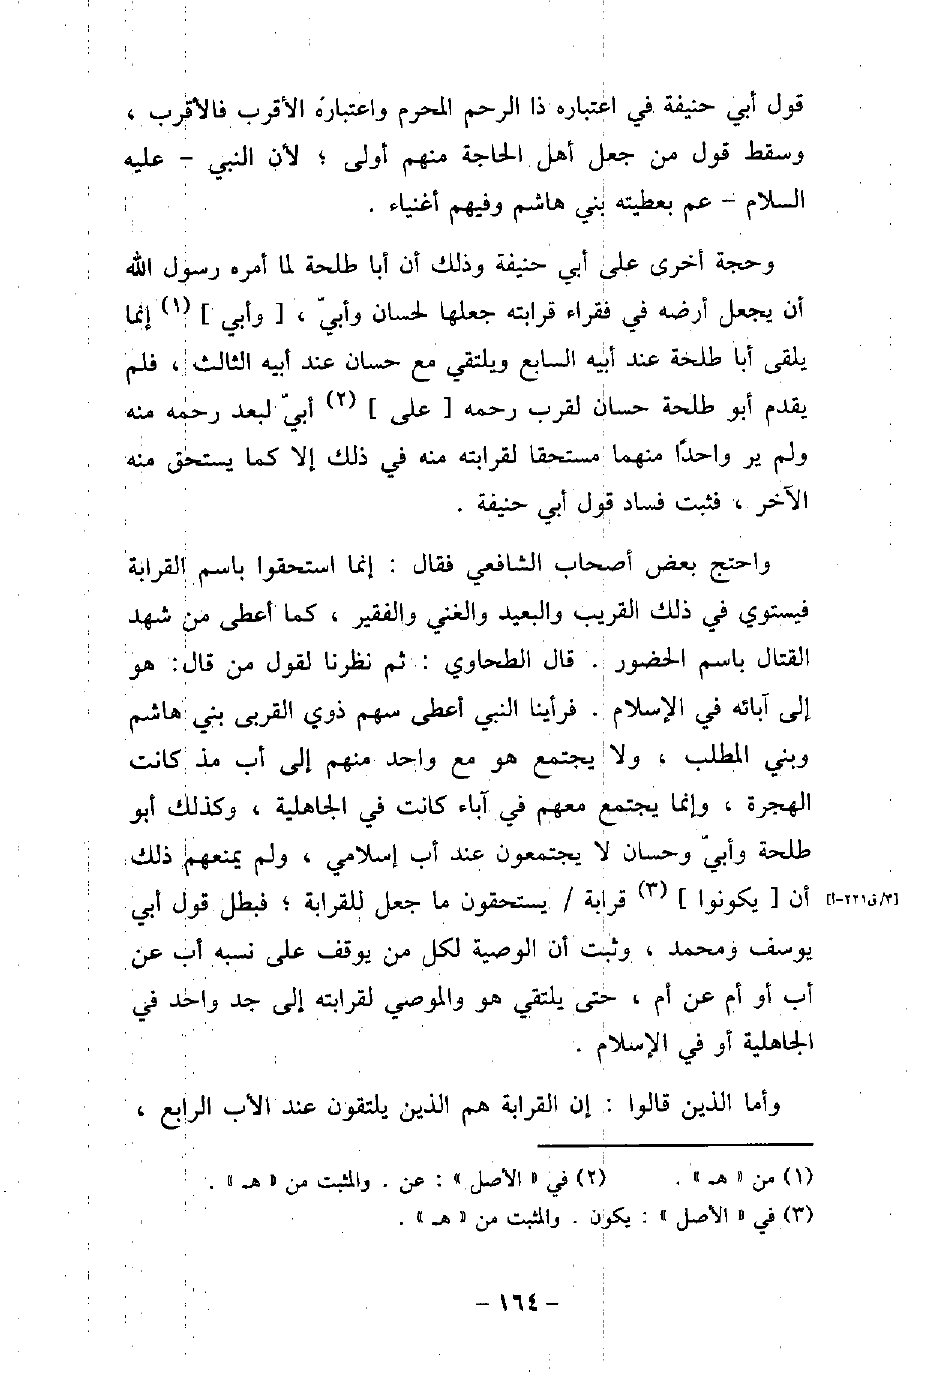 قول أبي حنيفة في اعتباره ذا الرحم المحرم واعتباره الأقرب فالأقرب ،
وسقط قول من جعل أهل الحاجة منهم أولى ؛ لأن النبي - عليه
السلام - عم بعطيته بني هاشم وفيهم أغنياء .
وحجة أخرى على أبي حنيفة وذلك أن أبا طلحة لما أمره رسول الله
أن يجعل أرضه في فقراء قرابته جعلها لحسان وأبيّ ، [ وأبي ] (١) إنما
يلقى أبا طلحة عند أبيه السابع ويلتقي مع حسان عند أبيه الثالث ، فلم
يقدم أبو طلحة حسان لقرب رحمه [ على ] (٢) أبيّ لبعد رحمه منه
ولم ير واحدًا منهما مستحقا لقرابته منه في ذلك إلا كما يستحق منه
الآخر ، فثبت فساد قول أبي حنيفة .
واحتج بعض أصحاب الشافعي فقال : إنما استحقوا باسم القرابة
فيستوي في ذلك القريب والبعيد والغني والفقير ، كما أعطى من شهد
القتال باسم الحضور . قال الطحاوي : ثم نظرنا لقول من قال: هو
إلى آبائه في الإسلام . فرأينا النبي أعطى سهم ذوي القربى بني هاشم
وبني المطلب ، ولا يجتمع هو مع واحد منهم إلى أب مذ كانت
الهجرة ، وإنما يجتمع معهم في آباء كانت في الجاهلية ، وكذلك أبو
طلحة وأبيّ وحسان لا يجتمعون عند أب إسلامي ، ولم يمنعهم ذلك
أن [ يكونوا ] (٣) قرابة / يستحقون ما جعل للقرابة ؛ فبطل قول أبي [٣/ق٢٢١-أ]
يوسف ومحمد ، وثبت أن الوصية لكل من يوقف على نسبه أب عن
أب أو أم عن أم ، حتى يلتقي هو والموصي لقرابته إلى جد واحد في
الجاهلية أو في الإسلام .
وأما الذين قالوا : إن القرابة هم الذين يلتقون عند الأب الرابع ،
(١) من « هـ » . (٢) في « الأصل » : عن . والمثبت من « هـ » .
(٣) في « الأصل » : يكون . والمثبت من « هـ » .
- ١٦٤ -